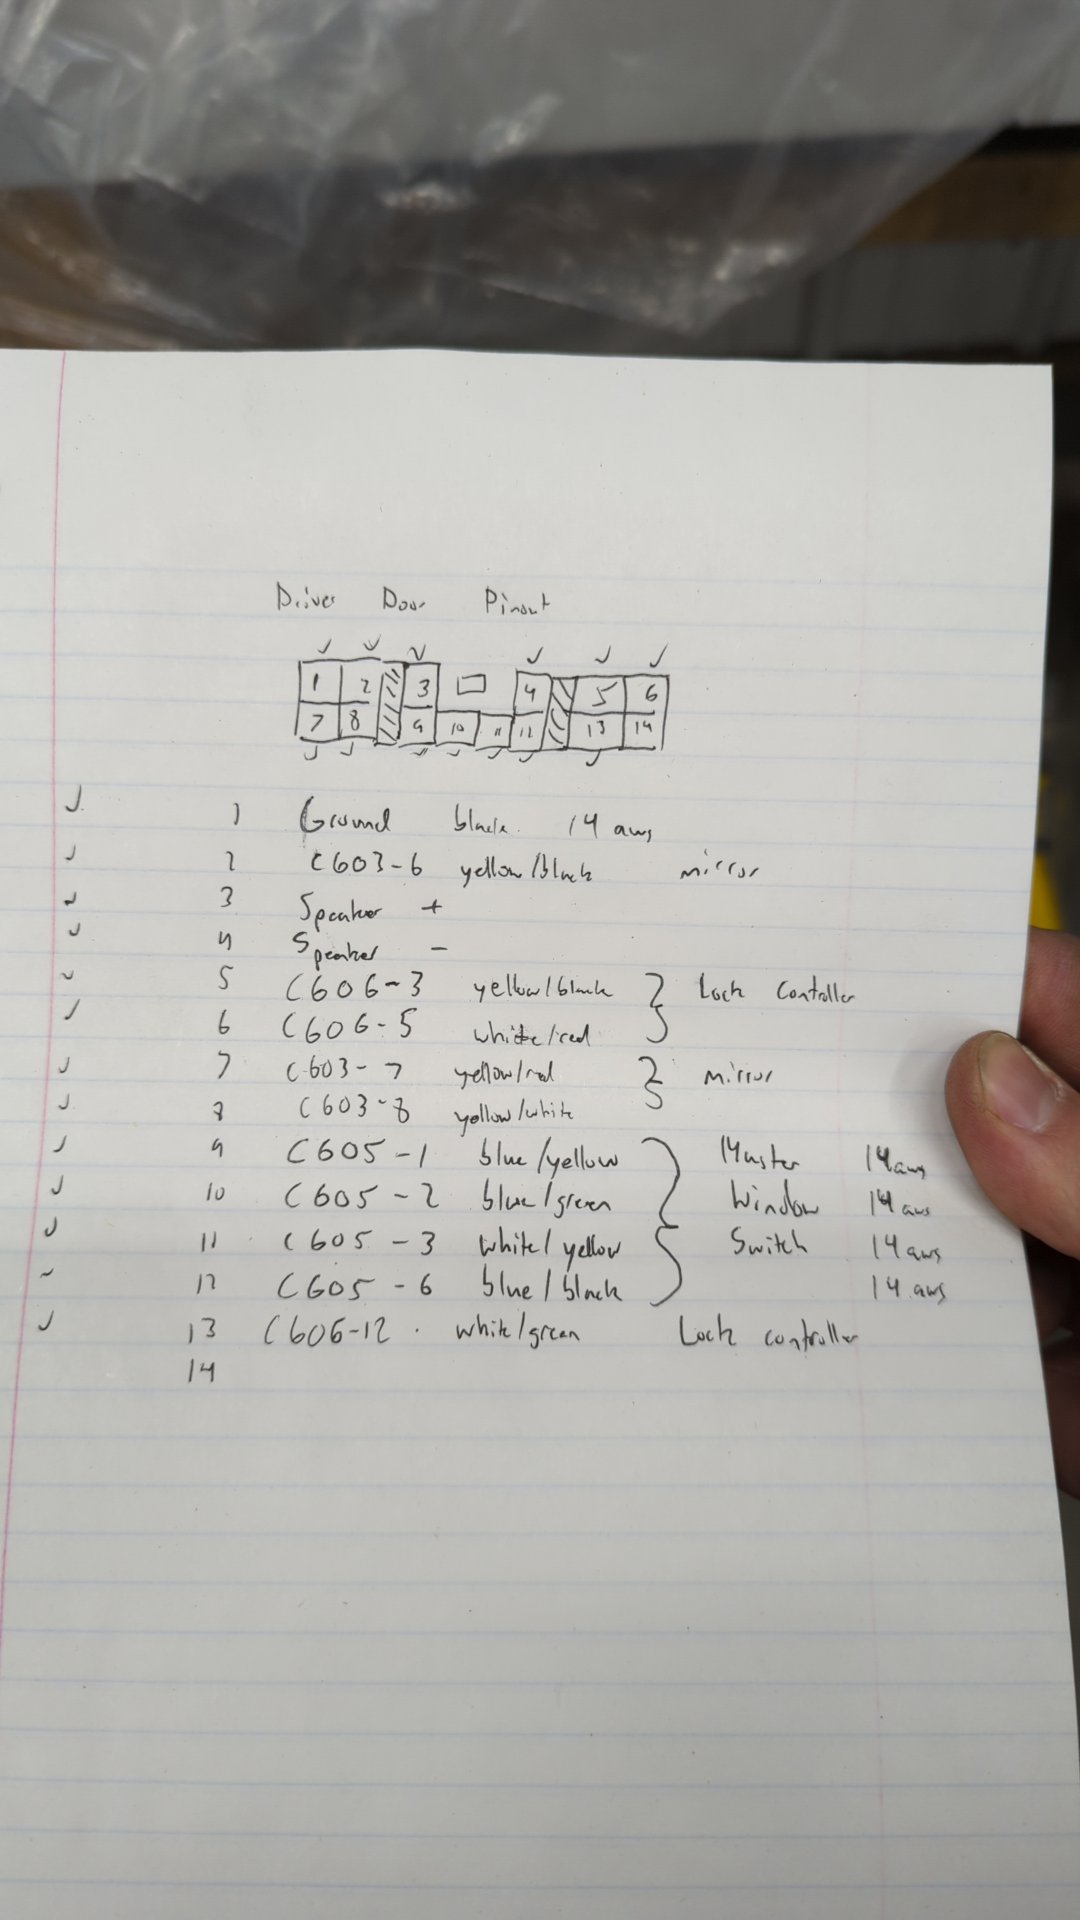 Driver Door Pinout
1 2 3 4 5 6
7 8 9 10 11 12 13 14
1 Ground black 14 awg
2 C603-6 yellow/black mirror
3 Speaker +
4 Speaker -
5 C606-3 yellow/black } Lock Controller
6 C606-5 white/red
7 C603-7 yellow/red } mirror
8 C603-8 yellow/white
9 C605-1 blue/yellow Master 14 awg
10 C605-2 blue/green Window 14 awg
11 C605-3 white/yellow Switch 14 awg
12 C605-6 blue/black 14 awg
13 C606-12 white/green Lock controller
14